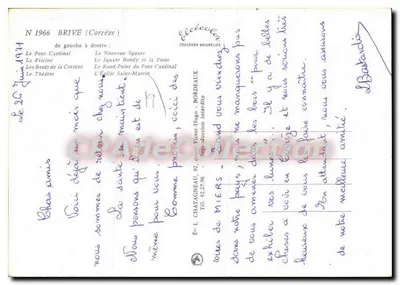 N 1966 BRIVE (Corrèze)
de gauche à droite :
Le Pont Cardinal
La Piscine
Les Bords de la Corrèze
Le Théâtre
Le Nouveau Square
Le Square Bandy et la Poste
Le Rond-Point du Pont Cardinal
L'Eglise Saint-Martin
COULEURS NATURELLES
L. CHATAGNEAU, rue Victor-Hugo - BORDEAUX
Reproduction interdite
Le 26 Juin 1971
Chers amis
Voici déjà un mois que
nous sommes de retour chez nous
La santé se maintient,
Nous pensons qu'il en est de
même pour vous
Comme promis, voici des
vues de MIERS - quand vous viendrez
dans notre pays, nous ne manquerons pas
de vous amener dans les bois - pour
exhiber vos Il y a de belles
choses à voir en Corrèze et nous serons très
heureux de vous les faire connaître.
En attendant, nous vous assurons
de notre meilleure amitié.